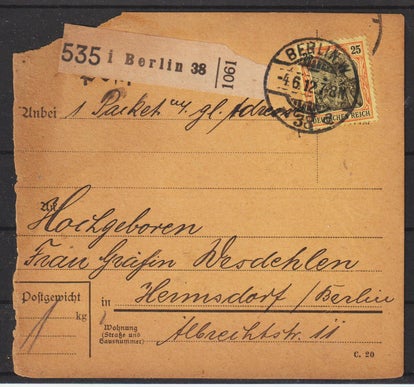 535 i Berlin 38
1061
BERLIN.W
-4.6.12.7-8N
38
25
DEUTSCHES REICH
Anbei 1 Packet a/ gl. Adresse
An
Hochgeboren
Frau Gräfin Wesdehlen
in Hermsdorf / Berlin
Albrechtstr. 11
Postgewicht
1 kg
Wohnung
(Straße und
Hausnummer)
C. 20